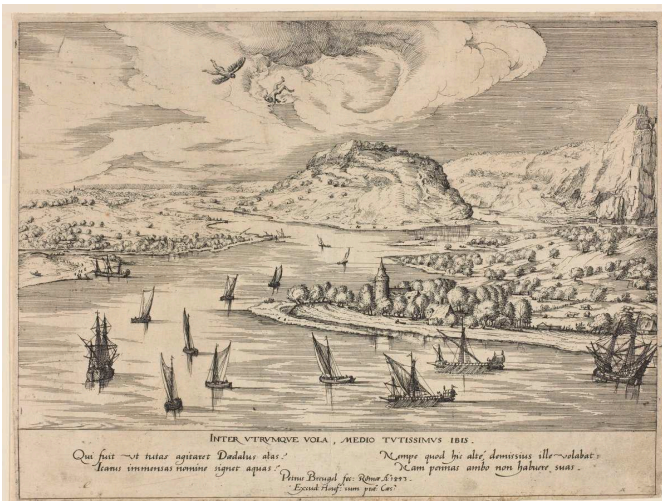 INTER VTRVMQVE VOLA, MEDIO TVTISSIMVS IBIS.
Qui fuit vt tutas agitaret Dædalus alas?
Icarus immensas nomine signet aquas?
Nempe quod hic alte, demissius ille volabat:
Nam pennas ambo non habuere suas.
Petrus Breugel fec: Romæ A.º 1553
Excud. Houf. cum præ. Cæs.